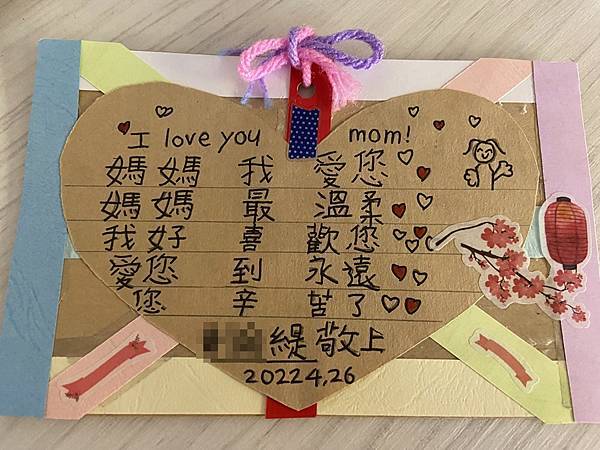 I love you mom!
媽媽 我 愛您
媽媽 最 溫柔
我好 喜 歡您
愛您 到 永遠
您 辛 苦了
緹 敬上
2022.4.26